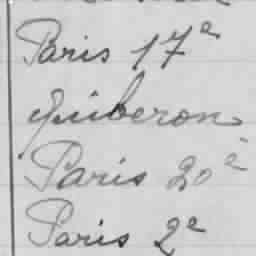 Paris 17e
Quiberon
Paris 20e
Paris 2e